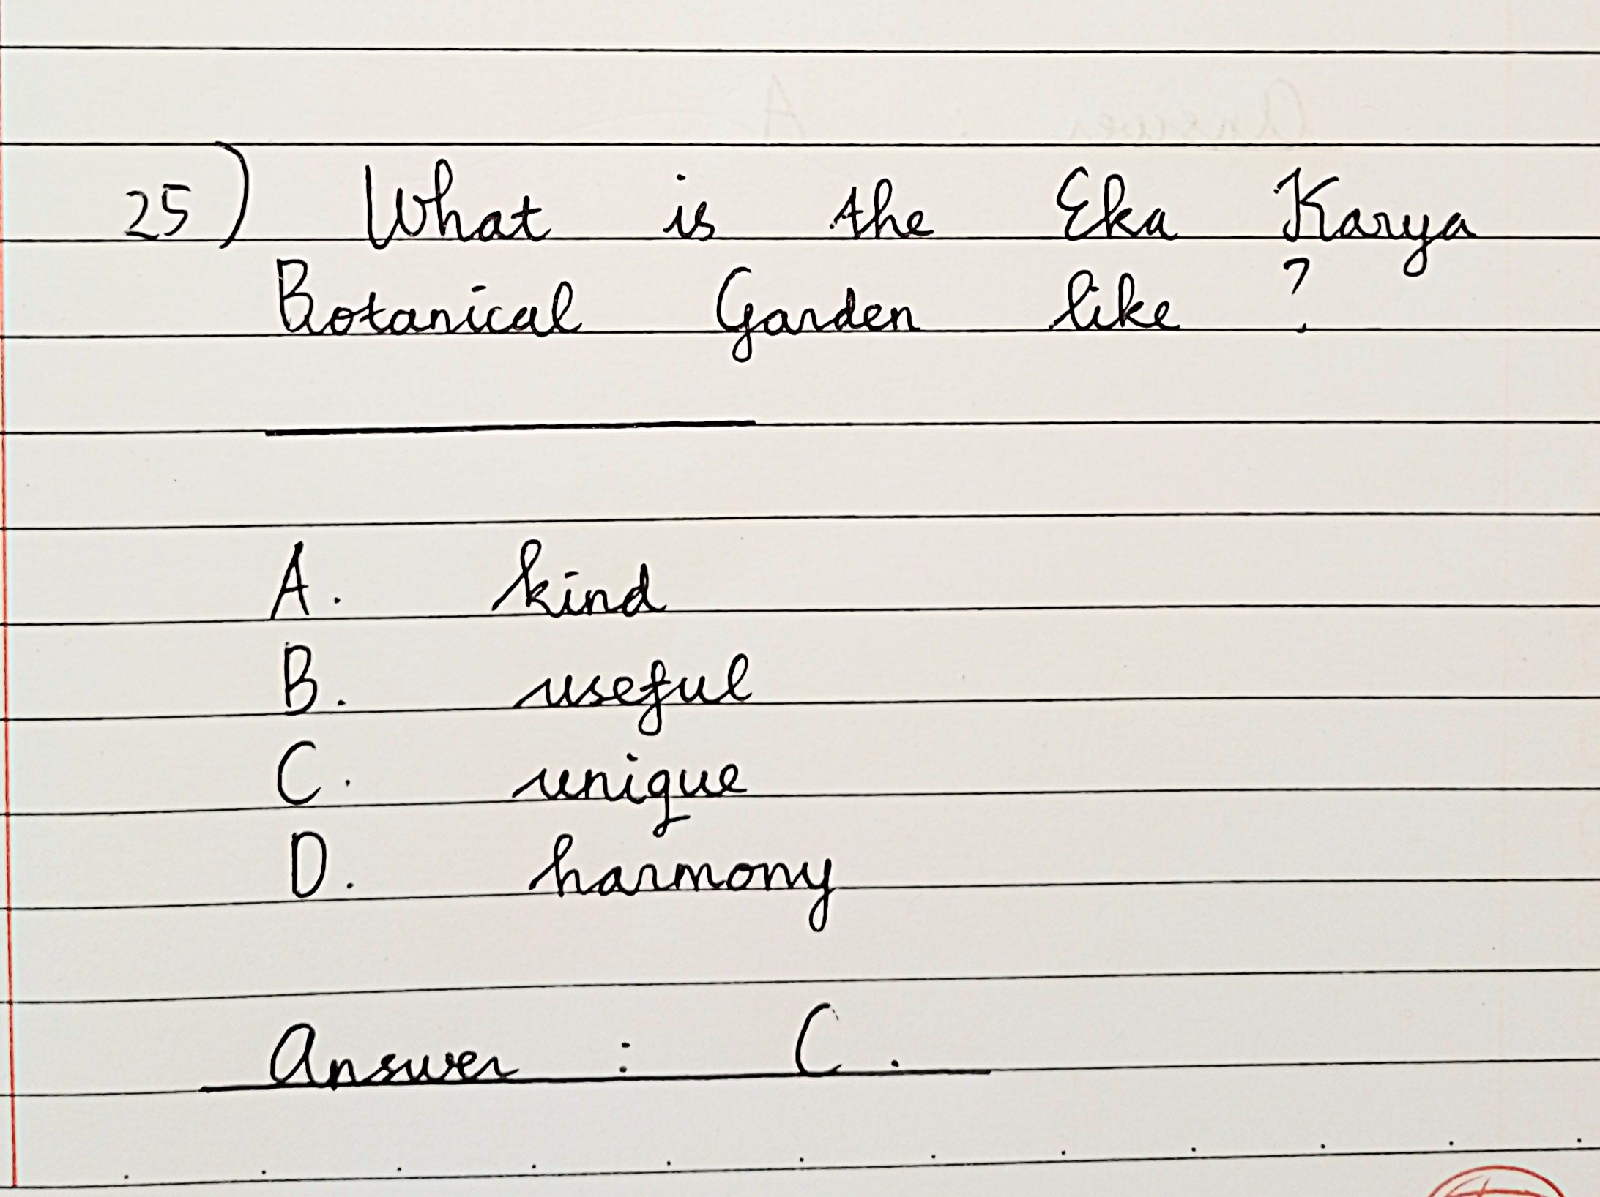 25) What is the Eka Karya
Botanical Garden like ?
A. kind
B. useful
C. unique
D. harmony
Answer : C.